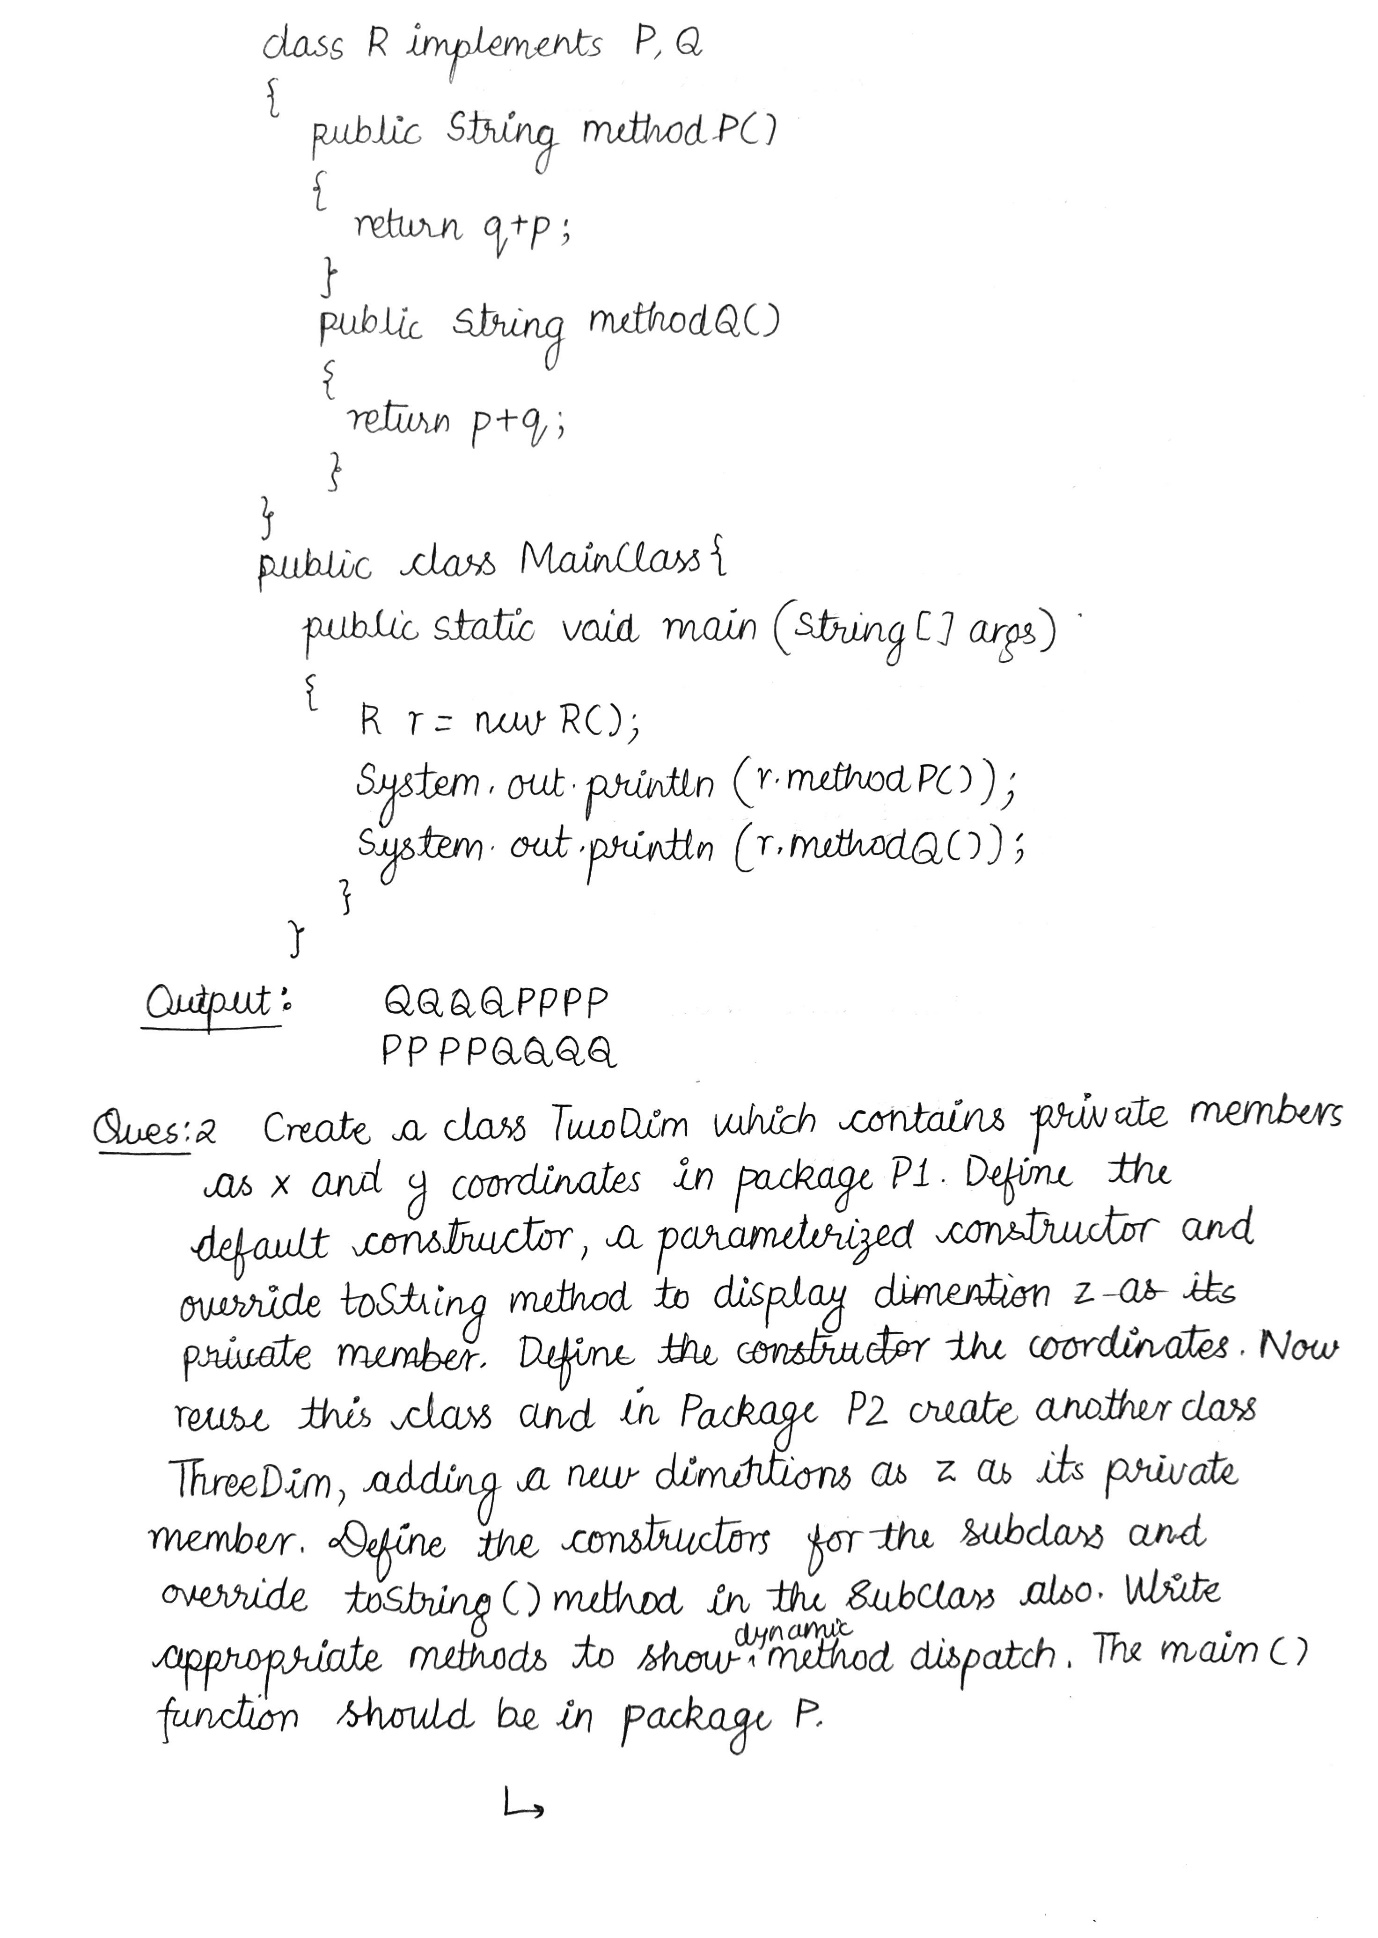 class R implements P, Q
{
public String methodP()
{
return q+p;
}
public String methodQ()
{
return p+q;
}
}
public class MainClass{
public static void main (String [] args)
{
R r = new R();
System.out.println (r.methodP());
System.out.println (r.methodQ());
}
}
Output: QQQQPPPP
PPPPQQQQ
Ques:2 Create a class TwoDim which contains private members
as x and y coordinates in package P1. Define the
default constructor, a parameterized constructor and
override toString method to display dimention z as its
private member. Define the constructor the coordinates. Now
reuse this class and in Package P2 create another class
ThreeDim, adding a new dimentions as z as its private
member. Define the constructors for the subclass and
override toString() method in the SubClass also. Write
appropriate methods to show dynamic method dispatch. The main()
function should be in package P.